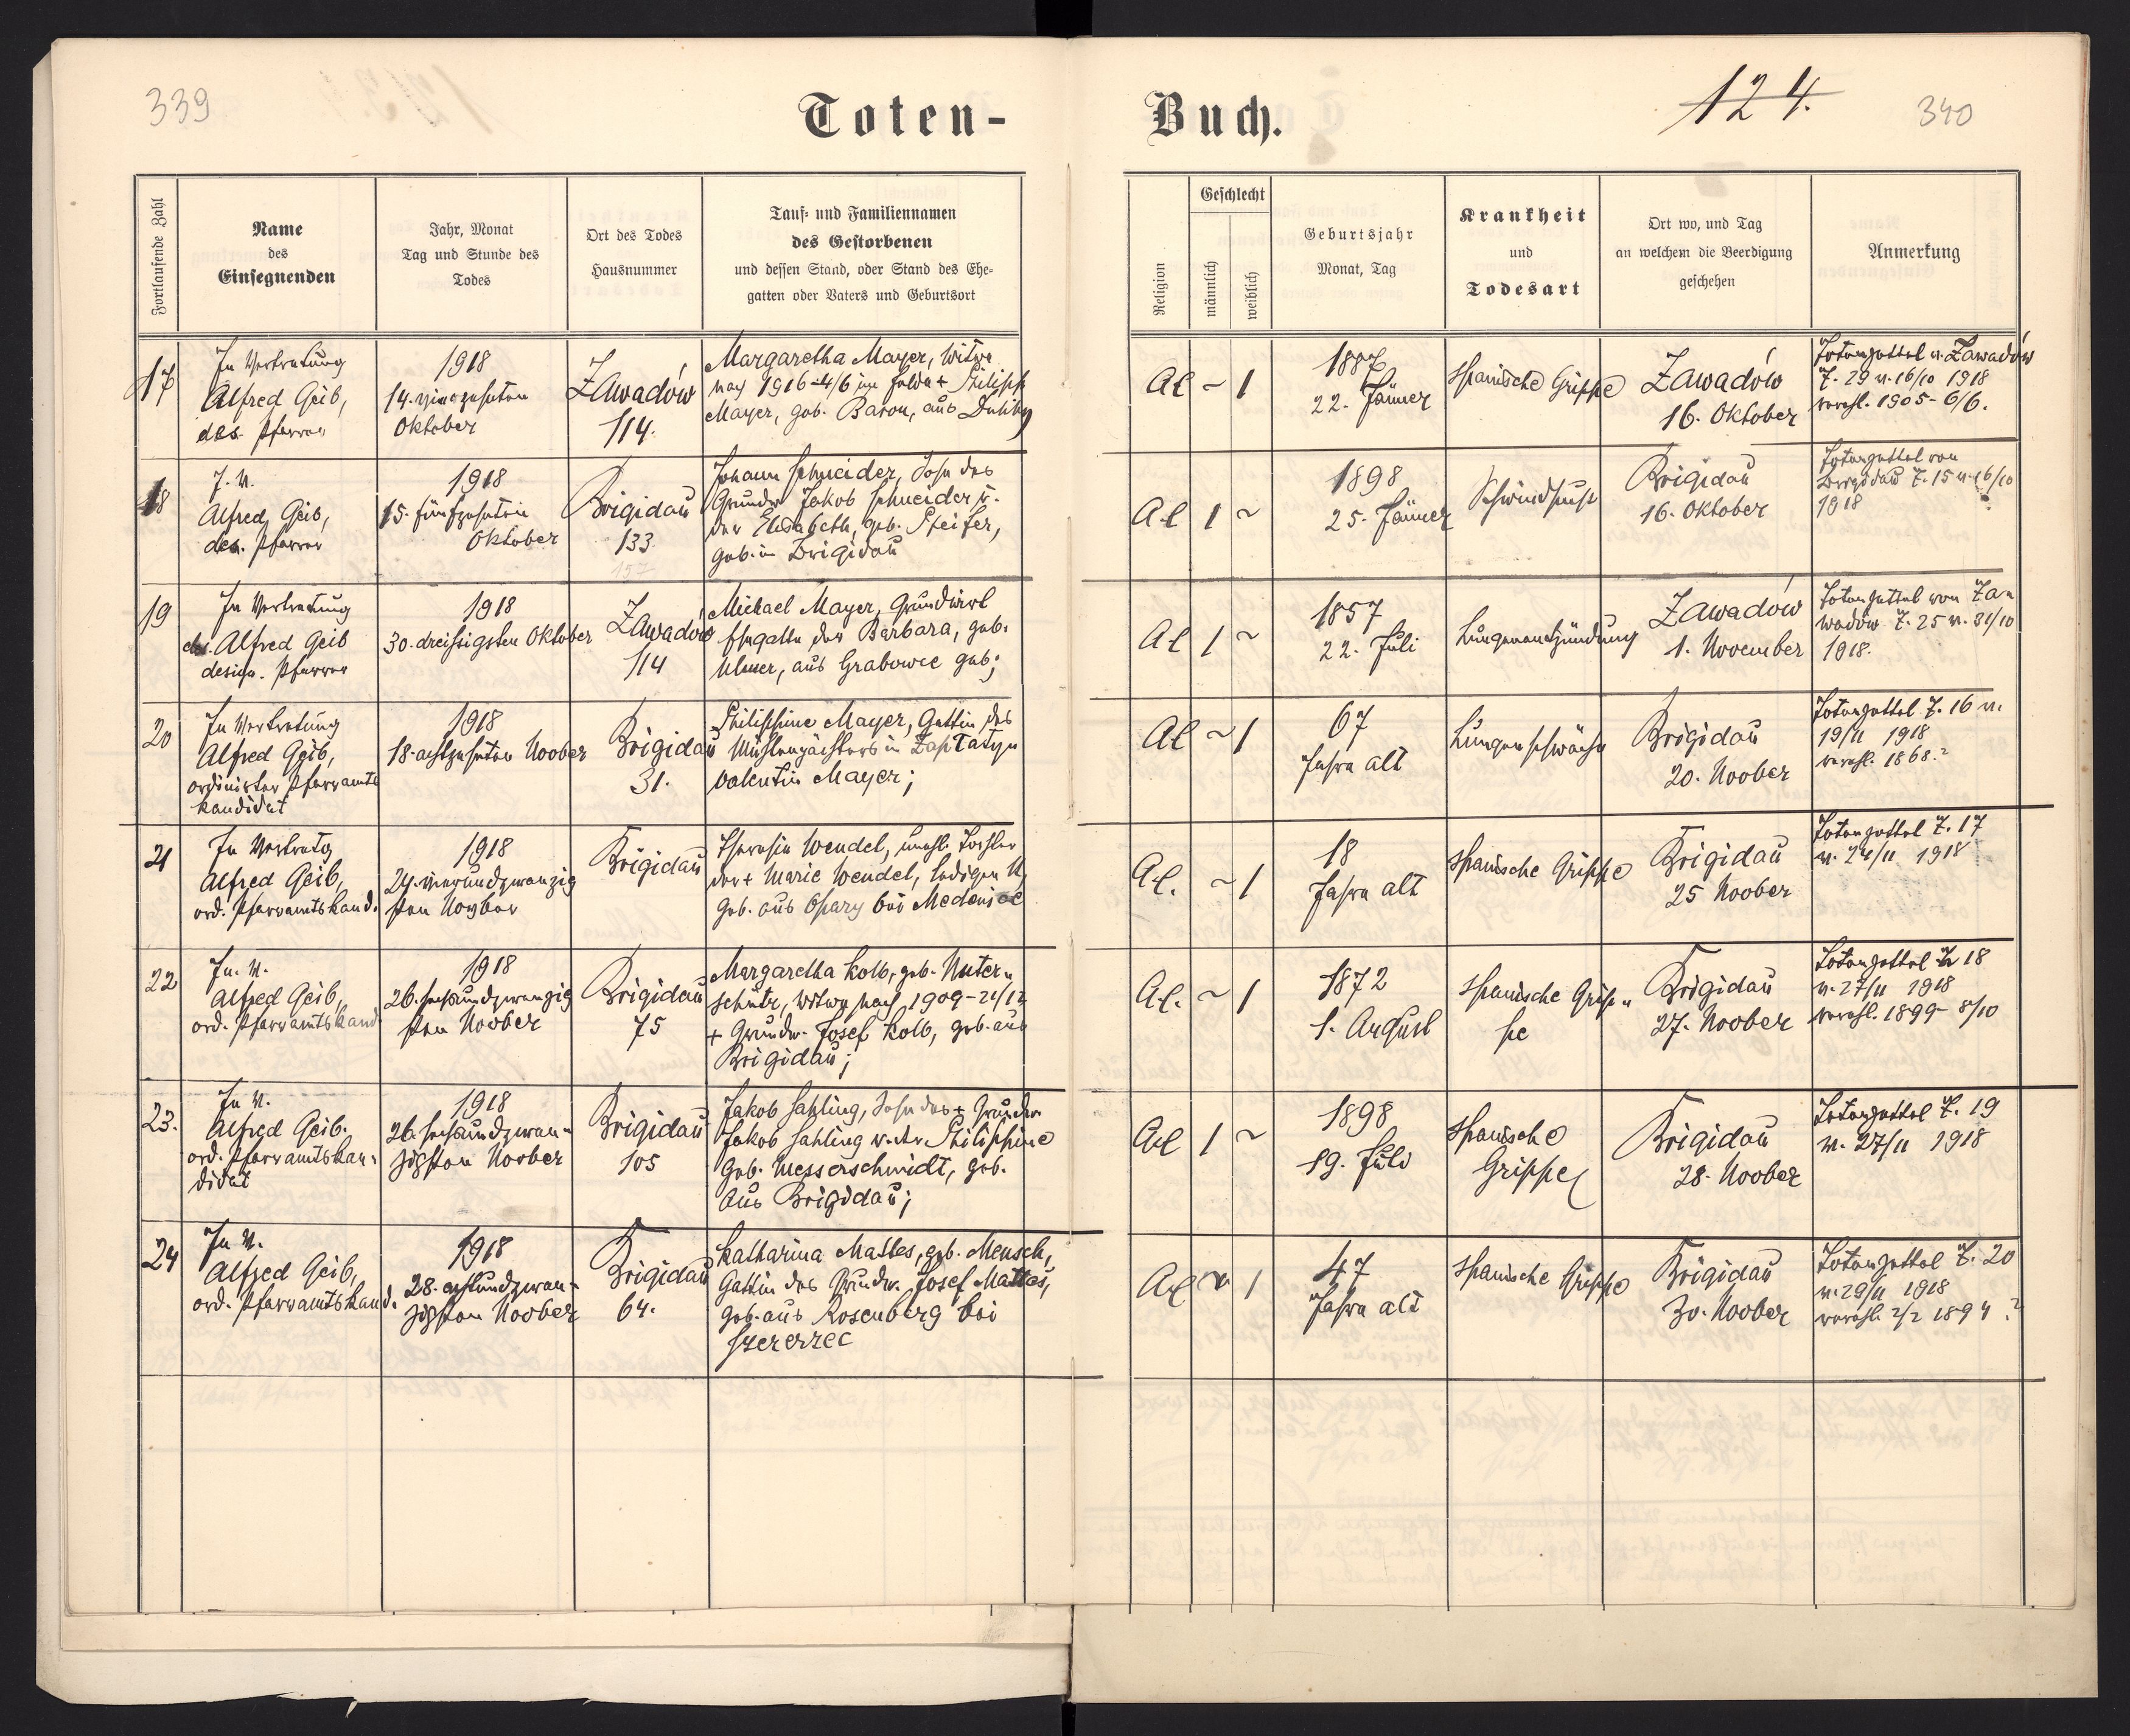 339
Toten-
Buch.
124.
340
Fortlaufende Zahl
Name
des
Einsegnenden
Jahr, Monat
Tag und Stunde des
Todes
Ort des Todes
Hausnummer
Tauf- und Familiennamen
des Gestorbenen
und dessen Stand, oder Stand des Ehe-
gatten oder Vaters und Geburtsort
Religion
Geschlecht
männlich
weiblich
Geburtsjahr
Monat, Tag
Krankheit
und
Todesart
Ort wo, und Tag
an welchem die Beerdigung
geschehen
Anmerkung
17
In Vertretung
Alfred Geib,
des. Pfarrer
1918
14. vierzehnten
Oktober
Zawadów
114.
Margaretha Mayer, Witwe
nach 1916-4/6 im Felde + Philipp
Mayer, geb. Baron, aus
AC ~ 1
1887
22. Jänner
spanische Grippe
Zawadów
16. Oktober
Totenzettel v. Zawadów
Z. 29 v. 16/10 1918
verehl. 1905-6/6.
18
I. V.
Alfred Geib,
des. Pfarrer
1918
15. fünfzehnten
Oktober
Brigidau
133
157
Johann Schneider, Sohn des
Grundw Jakob Schneider u.
der Elisabeth, geb. Pfeifer,
geb. in Brigidau
AC 1 ~
1898
25. Jänner
Schwindsucht
Brigidau
16. Oktober
Totenzettel von
Brigidau Z. 15 v. 16/10
1918
19
In Vertretung
Alfred Geib
design. Pfarrer
1918
30. dreißigsten Oktober
Zawadów
114
Michael Mayer, Grundwirt
Ehegatte der Barbara, geb.
Ulmer, aus Grabowce geb;
AC 1 ~
1857
22. Juli
Lungenentzündung
Zawadów
1. November
Totenzettel von Za=
wadów Z. 25 v. 31/10
1918.
20
In Vertretung
Alfred Geib,
ordinierter Pfarramts
kandidat
1918
18. achtzehnten Noober
Brigidau
31.
Philippine Mayer, Gattin des
Mühlenpächters in
Valentin Mayer;
AC ~ 1
67
Jahre alt
Lungenschwäche
Brigidau
20. Noober
Totenzettel Z. 16 v.
19/11 1918
verehl. 1868.?
21
In Vertretg
Alfred Geib,
ord. Pfarramtskand.
1918
24. vierundzwanzig
sten Novber
Brigidau
Theresia Wendel, unehl. Tochter
der + Marie Wendel, ledigen
geb. aus Opary bei Medenice
AC. ~ 1
18
Jahre alt
spanische Grippe
Brigidau
25 Noober
Totenzettel Z. 17
v. 24/11 1918
22
In. V.
Alfred Geib,
ord. Pfarramtskand
1918
26. sechsundzwanzig
sten Noober
Brigidau
75
Margaretha Kolb, geb. Unter=
schütz, Witwe nach 1909-21/12
+ Grundw. Josef Kolb, geb. aus
Brigidau;
AC. ~ 1
1872
1. August
spanische Grip=
pe
Brigidau
27. Noober
Totenzettel Z. 18
v. 27/11 1918
verehl. 1899- 8/10
23.
In V.
Alfred Geib.
ord. Pfarramtskan=
didat
1918
26. sechsundzwan=
zigsten Noober
Brigidau
105
Jakob Sahling, Sohn des + Grundw
Jakob Sahling u. der Philippine
geb. Messerschmidt, geb.
aus Brigidau;
AC 1 ~
1898
19. Juli
spanische
Grippe
Brigidau
28. Noober
Totenzettel Z. 19
v. 27/11 1918
24
In V.
Alfred Geib,
ord. Pfarramtskand.
1918
28. achtundzwan=
zigsten Noober
Brigidau
64.
Katharina Mattes, geb. Mensch,
Gattin des Grundw. Josef Mattes,
geb. aus Rosenberg bei
Szczerzec
AC ~ 1
47
Jahre alt
spanische Grippe
Brigidau
30. Noober
Totenzettel Z. 20
v. 29/11 1918
verehl. 2/2 1894 ?